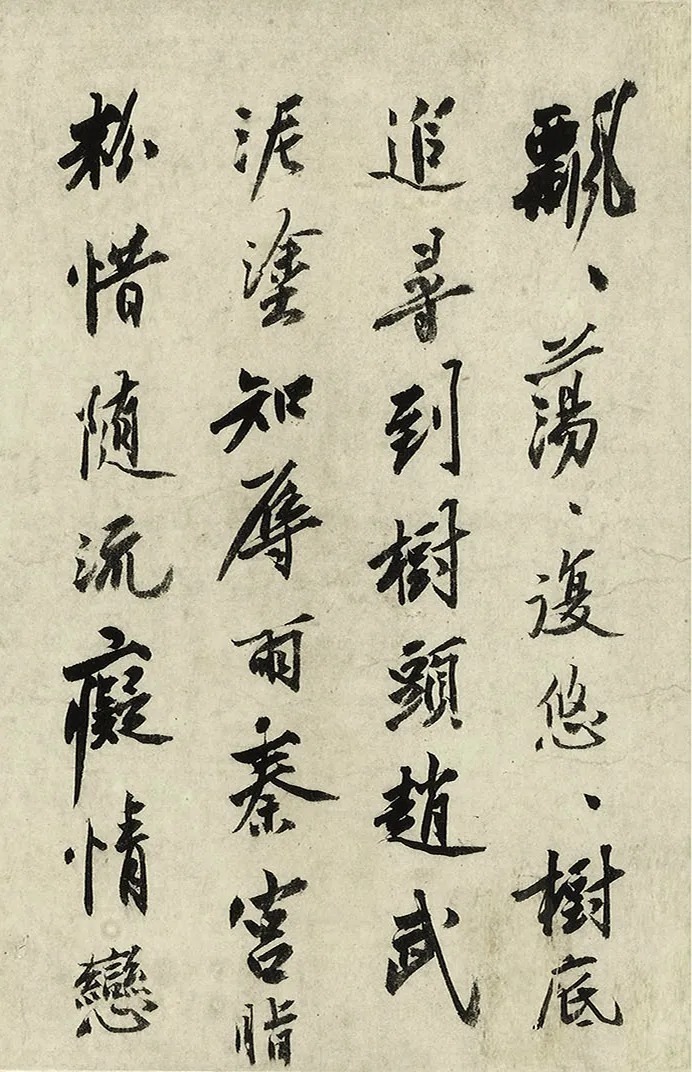 飄、蕩、復悠、樹底
追尋到樹頭趙武
泥塗知辱雨秦宮脂
粉惜随流癡情戀